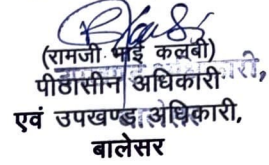 (रामजी भाई कलबी)
पीठासीन अधिकारी
एवं उपखण्ड अधिकारी,
बालेसर